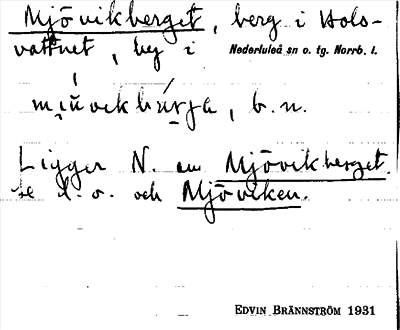 Mjövikberget, berg i Hols-
vattnet, by i Nederluleå sn o. tg. Norrb. l.
b. n.
Ligger N. om Mjövikberget.
Se d. o. och Mjöviken.
EDVIN BRÄNNSTRÖM 1931